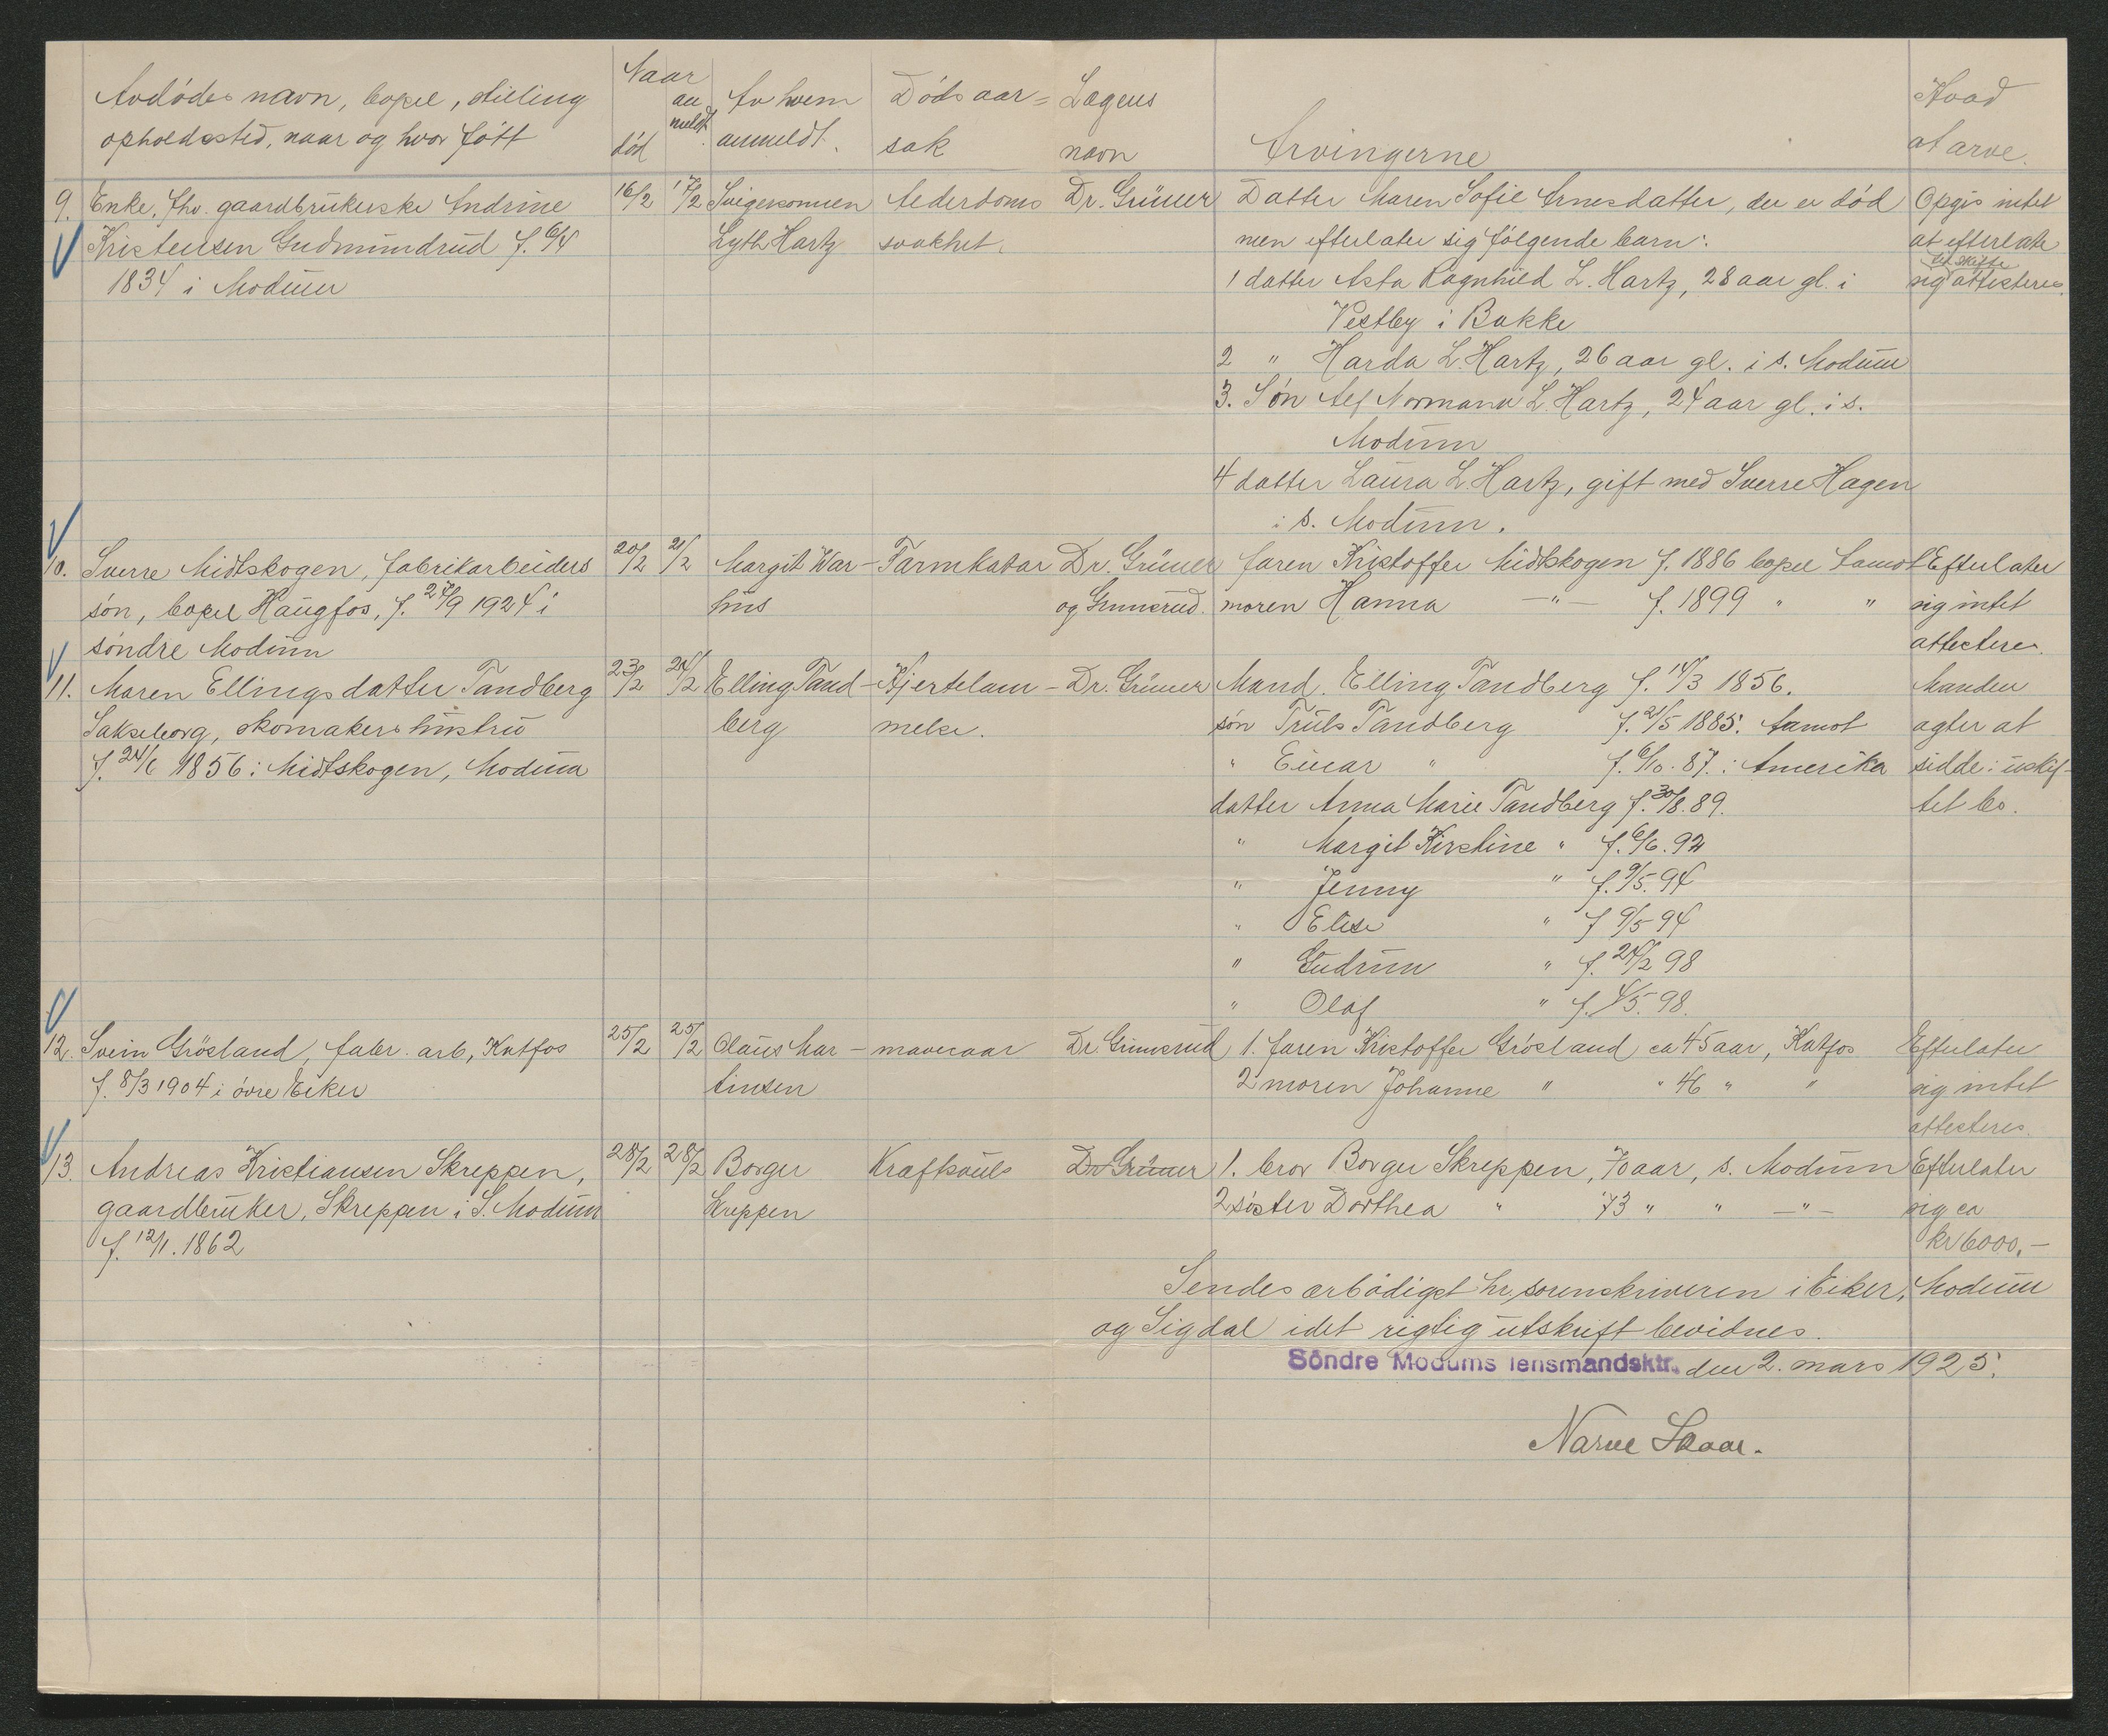 Avdødes navn, bopæl, stilling
opholdssted, naar og hvor født
Naar
død
an
meldt.
Av hvem
anmeldt.
Dødsaar=
sak
Lægens
navn
Arvingerne
Hvad
at arve.
9. Enke, fhv. gaardbrukerske Andrine
Kristensen Gudmundrud f. 6/4
1834 i Modum
16/2 17/2
Svigersønnen
Lyth Hartz
Alderdoms
svakhet.
Dr. Grüner
Datter Maren Sofie Arnesdatter, der er død
men efterlater sig følgende barn:
1 datter Asta Ragnhild L. Hartz, 28 aar gl. i
Vestby i Bakke
2 " Harda L. Hartz, 26 aar gl. i s. Modum
3. Søn Alf Normann L. Hartz, 24 aar gl. i s.
Modum
4 datter Laura L. Hartz, gift med Sverre Hagen
i s. Modum.
Opgis intet
at efterlate
til skifte
sig attesteres.
10. Sverre Midtskogen, fabrikarbeiders
søn, bopæl Haugfos, f. 27/9 1924 i
søndre Modum
20/2 21/2
Margit War-
hus
Tarmkatar
Dr. Grüner
og Gunnerud.
faren Kristoffer Midtskogen f. 1886 bopæl Aamot
moren Hanna -"- f. 1899 " "
Efterlater
sig intet
attesteres.
11. Maren Ellingsdatter Tandberg
Sakseborg, skomakers hustru
f. 24/6 1856 i Midtskogen, Modum
23/2 24/2
Elling Tand-
berg
Hjertelam-
melse.
Dr. Grüner
Mand. Elling Tandberg f. 14/3 1856.
søn Truls Tandberg f. 21/5 1885. Aamot
" Einar " f. 6/10. 87. i Amerika
datter Anna Marie Tandberg f. 30/8. 89.
" Margit Kirstine " f. 6/6. 92
" Jenny " f. 9/5. 94
" Elise " f 9/5 94
" Gudrun " f. 24/2 98
" Olaf " f. 4/5. 98.
Manden
agter at
sidde i uskif-
tet bo.
12. Svein Grøsland, fabr. arb, Katfos
f. 8/3 1904 i øvre Eiker
25/2 25/2
Olaus Mar-
tinsen
mavesaar
Dr. Gunnerud
1. faren Kristoffer Grøsland ca 45 aar, Katfos
2 moren Johanne " " 46 " "
Efterlater
sig intet
attesteres.
13. Andreas Kristiansen Skreppen,
gaardbruker, Skreppen i S. Modum
f. 12/1. 1862
28/2 28/2
Borger
Skreppen
Kraftsvuls
Dr Grüner
1. bror Borger Skreppen, 70 aar, s. Modum
2 søster Dorthea " 73 " " -"-
Efterlater
sig ca
kr 6000,-
Sendes ærbødigst hr. sorenskriveren i Eiker, Modum
og Sigdal idet rigtig utskrift bevidnes.
Söndre Modums lensmandsktr. den 2. mars 1925.
Narve Skaar.